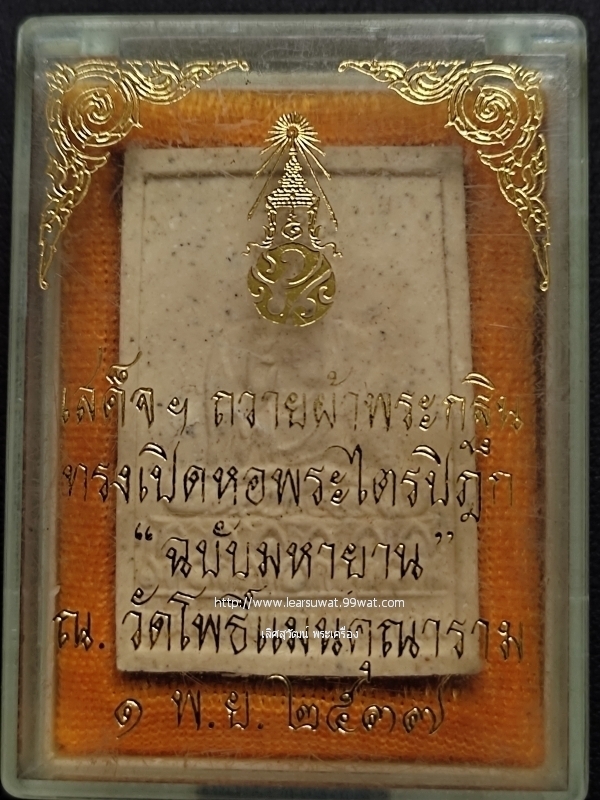 เสด็จฯ ถวายผ้าพระกฐิน
ทรงเปิดหอพระไตรปิฎก
“ฉบับมหายาน”
http://www.learsuwat.99wat.com
ณ. วัดโพธิ์แมนคุณาราม
เลิศสุวัฒน์ พระเครื่อง
๑ พ.ย. ๒๕๓๗